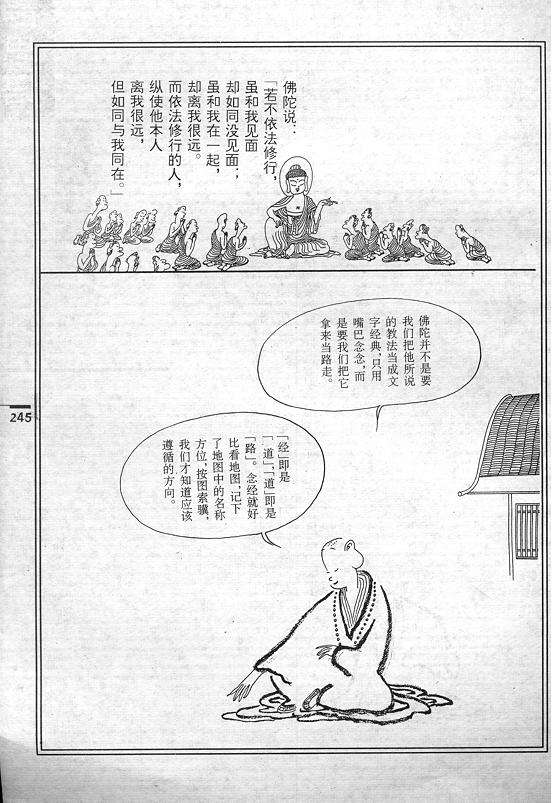 佛陀说：
「若不依法修行，
虽和我见面
却如同没见面；
虽和我在一起，
却离我很远。
而依法修行的人，
纵使他本人
离我很远，
但如同与我同在。」
佛陀并不是要
我们把他所说
的教法当成文
字经典，只用
嘴巴念念，而
是要我们把它
拿来当路走。
「经」即是
「道」，「道」即是
「路」。念经就好
比看地图，记下
了地图中的名称
方位，按图索骥，
我们才知道应该
遵循的方向。
245